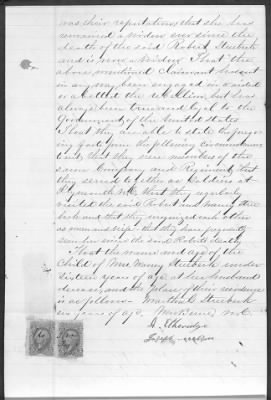 was their reputation, that she has
remained a widow ever since the
death of the said Robert
and is now a widow. That the
above mentioned Claimant has not
in any way been engaged in or aided
or abetted the rebellion, but has
always been true and loyal to the
Government of the United States
That they are able to state the forego-
ing facts from the following circumstances
to wit, that they were members of the
same Company and Regiment, that
they served together as soldiers at
Plymouth N.C. that they regularly
visited the said Robert and Mary
and that they recognized each other
as man and wife that they have frequently
seen her since the said Robert's death
That the name and age of the
Child of Mrs Mary under
sixteen years of age at her husband's
decease, and the place of their residence
is as follows - Martha C
six years of age. N.C.
Etheridge
Joseph